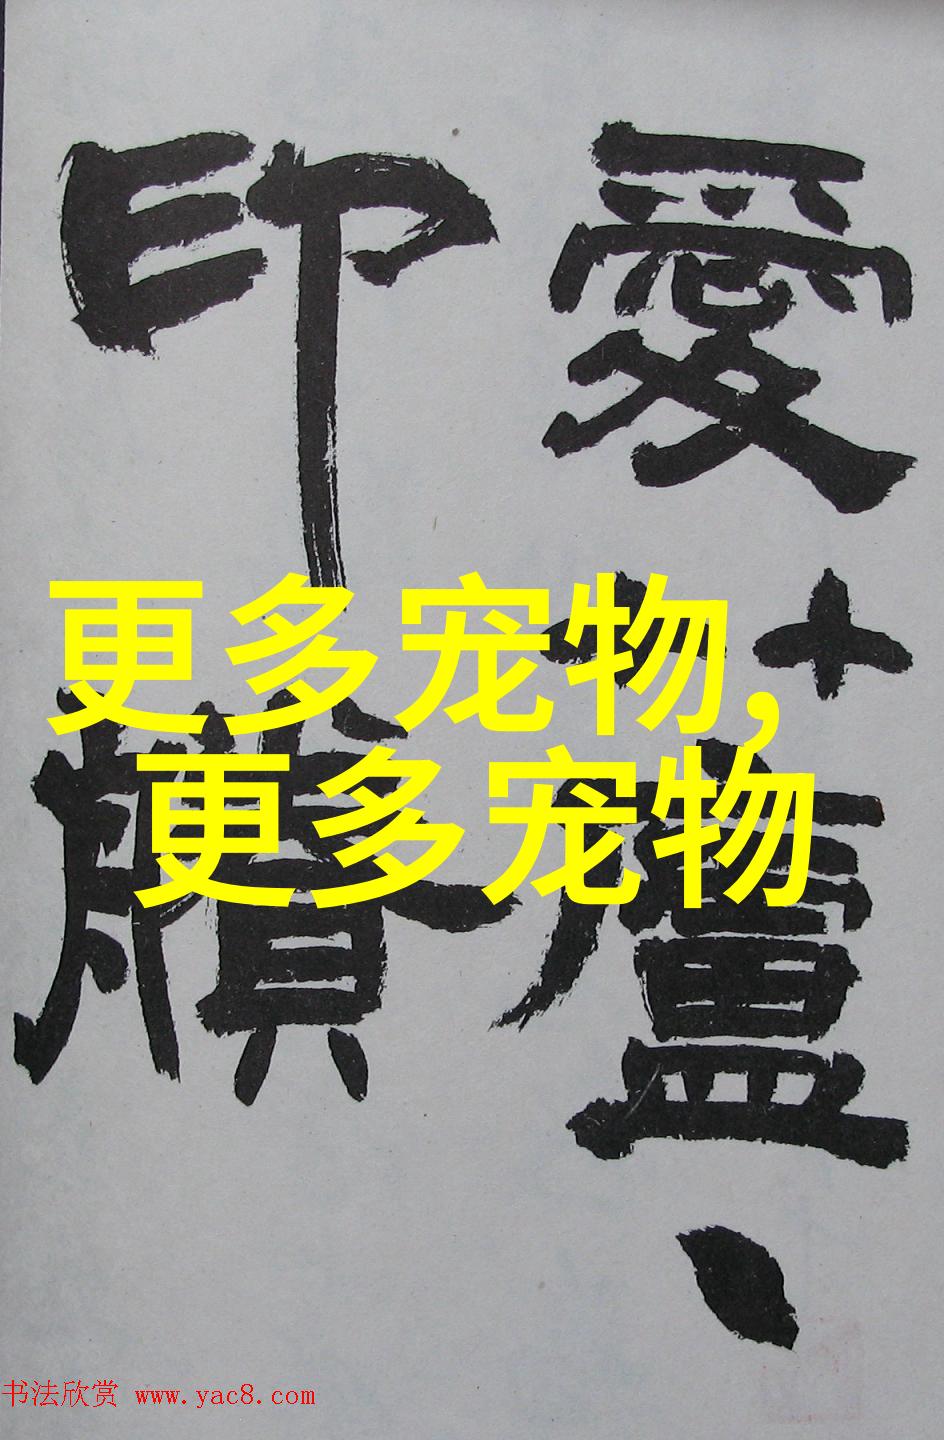 愛蘆、
印牘
更多宠物,
更多宠物
书法欣赏 www.yac8.com